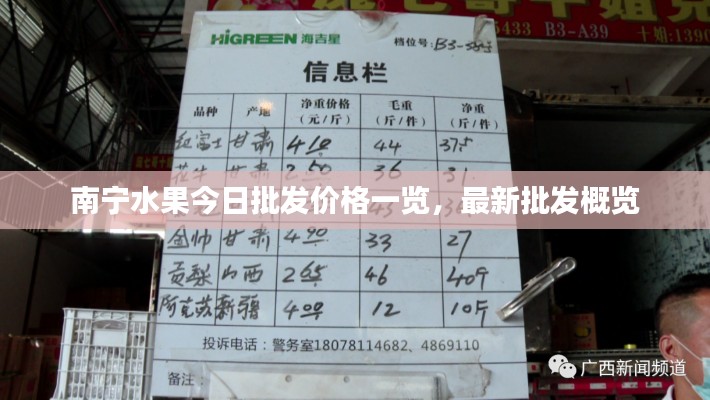 B3-A39 十姐:1390
HiGREEN 海吉星
档位号: B3-58号
信息栏
品种 产地 净重价格(元/斤) 毛重(斤/件) 净重(斤/件)
红富士 甘肃 4.10 44 37.5
花牛 甘肃 2.50 36 31
南宁水果今日批发价格一览，最新批发概览
金帅 甘肃 4.90 33 27
贡梨 山西 2.65 46 40斤
阿克苏 新疆 4.00 12 10斤
投诉电话：警务室18078114682、4869110
备注：
广西新闻频道